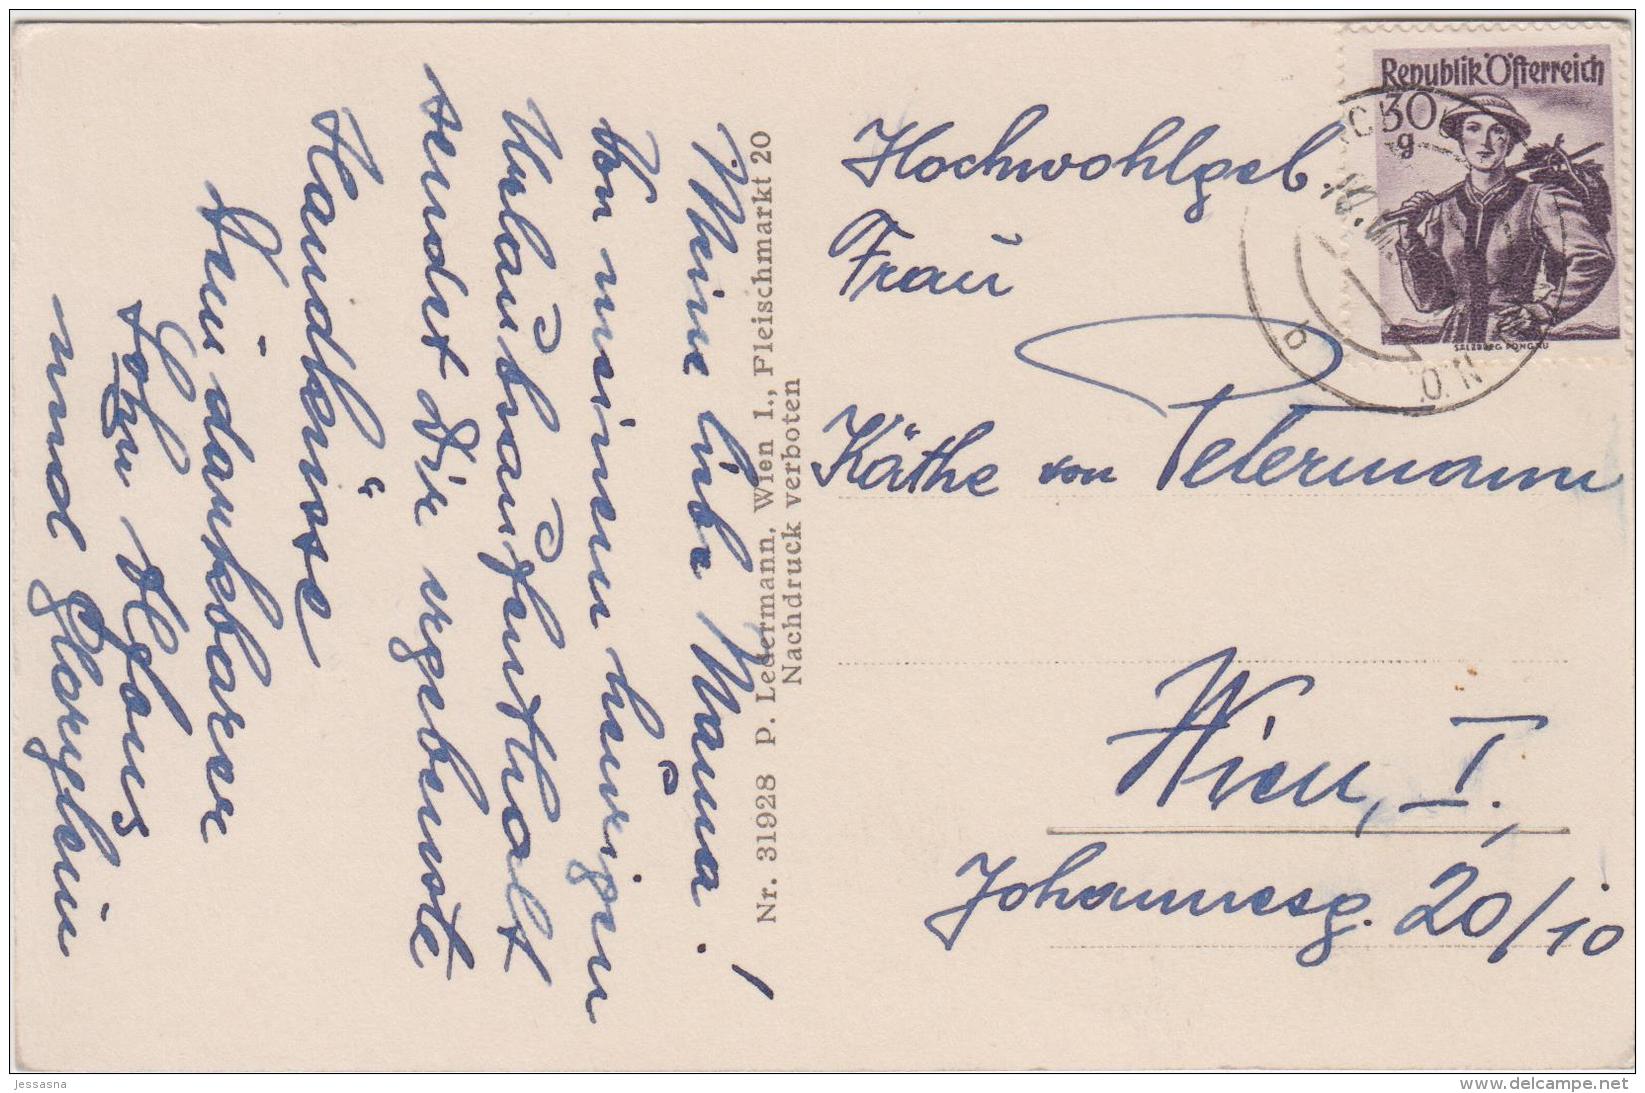 Meine liebe Mama!
Von meinem heurigen
Urlaubsaufenthalt
sendet Dir ergebenste
Handküsse
Dein dankbarer
Sohn Alfons
und
Nr. 31928 P. Ledermann, Wien I., Fleischmarkt 20
Nachdruck verboten
Republik Österreich
30
g
SALZBURG PONGAU
b
Hochwohlgeb.
Frau
Käthe von Petermann
Wien, I.,
Johannesg. 20/10
jessasna
www.delcampe.net